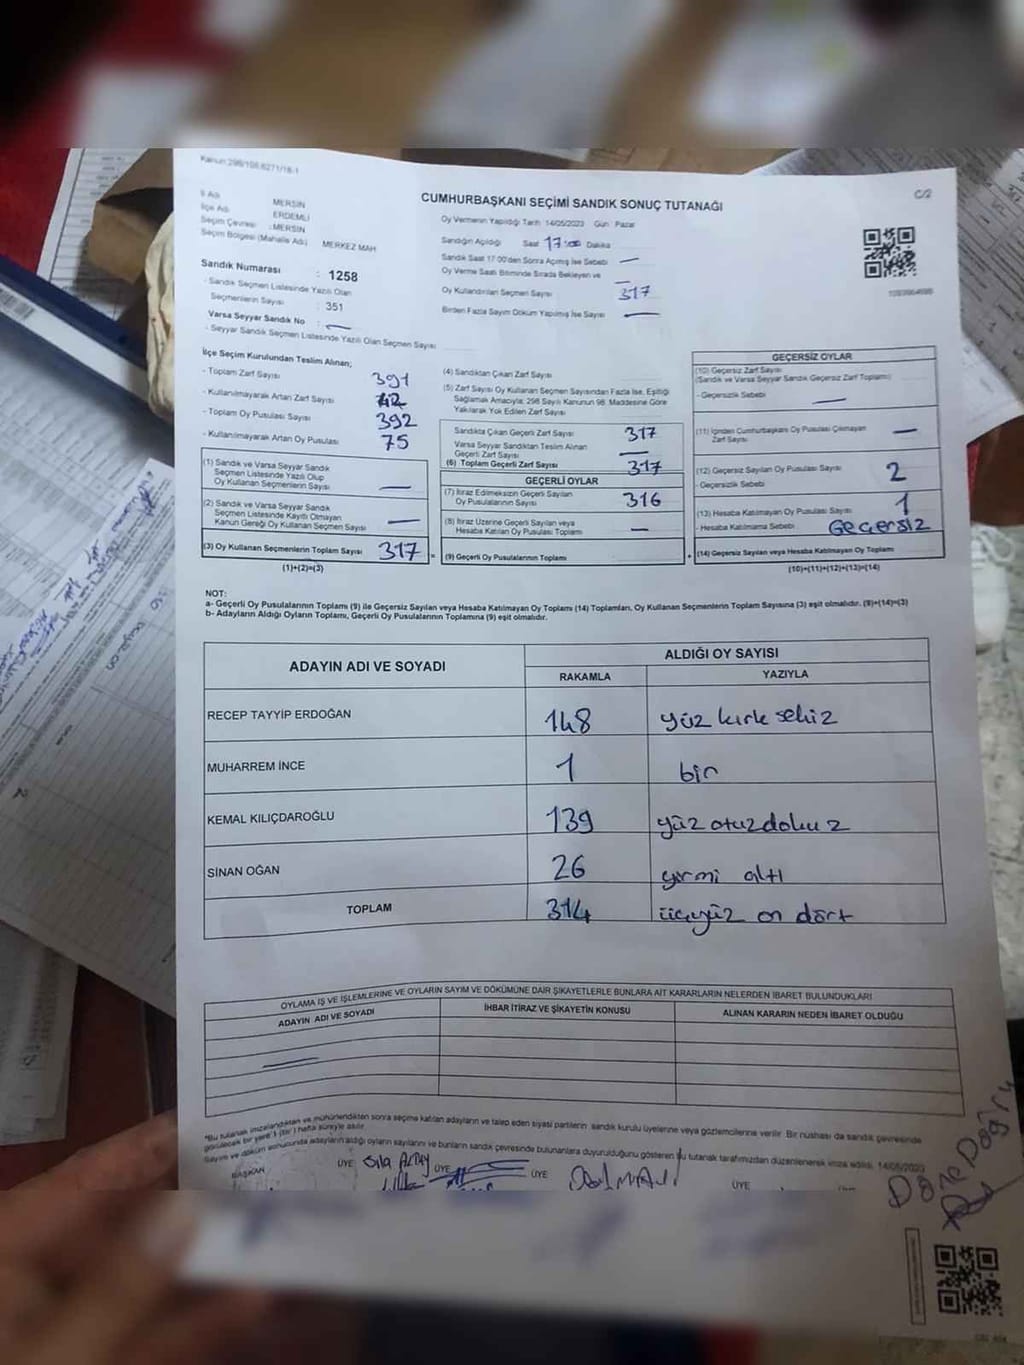 Kanun:298/106,6271/18-1
C/2
CUMHURBAŞKANI SEÇİMİ SANDIK SONUÇ TUTANAĞI
İl Adı : MERSİN
İlçe Adı ERDEMLİ
Seçim Çevresi : MERSİN
Seçim Bölgesi (Mahalle Adı) MERKEZ MAH
Sandık Numarası : 1258
- Sandık Seçmen Listesinde Yazılı Olan
Seçmenlerin Sayısı : 351
Varsa Seyyar Sandık No : —
- Seyyar Sandık Seçmen Listesinde Yazılı Olan Seçmen Sayısı
Oy Vermenin Yapıldığı Tarih 14/05/2023 Gün Pazar
Sandığın Açıldığı Saat 17:00 Dakika
Sandık Saat 17:00'den Sonra Açılmış İse Sebebi —
Oy Verme Saati Bitiminde Sırada Bekleyen ve
Oy Kullandırılan Seçmen Sayısı 317
Birden Fazla Sayım Döküm Yapılmış İse Sayısı —
İlçe Seçim Kurulundan Teslim Alınan;
- Toplam Zarf Sayısı 391
- Kullanılmayarak Artan Zarf Sayısı
- Toplam Oy Pusulası Sayısı 392
- Kullanılmayarak Artan Oy Pusulası 75
(1) Sandık ve Varsa Seyyar Sandık
Seçmen Listesinde Yazılı Olup
Oy Kullanan Seçmenlerin Sayısı —
(2) Sandık ve Varsa Seyyar Sandık
Seçmen Listesinde Kayıtlı Olmayan
Kanun Gereği Oy Kullanan Seçmen Sayısı —
(3) Oy Kullanan Seçmenlerin Toplam Sayısı 317
(1)+(2)=(3)
(4) Sandıktan Çıkan Zarf Sayısı
(5) Zarf Sayısı Oy Kullanan Seçmen Sayısından Fazla İse, Eşitliği
Sağlamak Amacıyla; 298 Sayılı Kanunun 98. Maddesine Göre
Yakılarak Yok Edilen Zarf Sayısı
Sandıkta Çıkan Geçerli Zarf Sayısı 317
Varsa Seyyar Sandıktan Teslim Alınan
Geçerli Zarf Sayısı —
(6) Toplam Geçerli Zarf Sayısı 317
GEÇERLİ OYLAR
(7) İtiraz Edilmeksizin Geçerli Sayılan
Oy Pusulalarının Sayısı 316
(8) İtiraz Üzerine Geçerli Sayılan veya
Hesaba Katılan Oy Pusulası Toplamı —
(9) Geçerli Oy Pusulalarının Toplamı
GEÇERSİZ OYLAR
(10) Geçersiz Zarf Sayısı
(Sandık ve Varsa Seyyar Sandık Geçersiz Zarf Toplamı)
- Geçersizlik Sebebi —
(11) İçinden Cumhurbaşkanı Oy Pusulası Çıkmayan
Zarf Sayısı —
(12) Geçersiz Sayılan Oy Pusulası Sayısı 2
- Geçersizlik Sebebi
(13) Hesaba Katılmayan Oy Pusulası Sayısı 1
- Hesaba Katılmama Sebebi GEÇERSİZ
(14) Geçersiz Sayılan veya Hesaba Katılmayan Oy Toplamı
(10)+(11)+(12)+(13)=(14)
NOT:
a- Geçerli Oy Pusulalarının Toplamı (9) ile Geçersiz Sayılan veya Hesaba Katılmayan Oy Toplamı (14) Toplamları, Oy Kullanan Seçmenlerin Toplam Sayısına (3) eşit olmalıdır. (9)+(14)=(3)
b- Adayların Aldığı Oyların Toplamı, Geçerli Oy Pusulalarının Toplamına (9) eşit olmalıdır.
ADAYIN ADI VE SOYADI
ALDIĞI OY SAYISI
RAKAMLA YAZIYLA
RECEP TAYYİP ERDOĞAN 148 yüz kırk sekiz
MUHARREM İNCE 1 bir
KEMAL KILIÇDAROĞLU 139 yüz otuz dokuz
SİNAN OĞAN 26 yirmi altı
TOPLAM 314 üçyüz on dört
OYLAMA İŞ VE İŞLEMLERİNE VE OYLARIN SAYIM VE DÖKÜMÜNE DAİR ŞİKAYETLERLE BUNLARA AİT KARARLARIN NELERDEN İBARET BULUNDUKLARI
ADAYIN ADI VE SOYADI İHBAR İTİRAZ VE ŞİKAYETİN KONUSU ALINAN KARARIN NEDEN İBARET OLDUĞU
*Bu tutanak imzalandıktan ve mühürlendikten sonra seçime katılan adayların ve talep eden siyasi partilerin sandık kurulu üyelerine veya gözlemcilerine verilir. Bir nüshası da sandık çevresinde
görülecek bir yere 1 (bir) hafta süreyle asılır.
Sayım ve döküm sonucunda adayların aldığı oyların sayılarını ve bunların sandık çevresinde bulunanlara duyurulduğunu gösteren bu tutanak tarafımızdan düzenlenerek imza edildi. 14/05/2023
BAŞKAN ÜYE Sıla ALTAY ÜYE ÜYE ÜYE
Döne Doğru